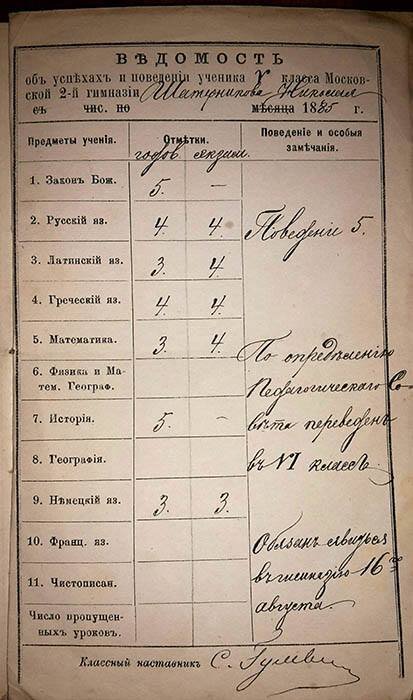 ВѢДОМОСТЬ
объ успѣхахъ и поведеніи ученика V класса Москов-
ской 2-й гимназіи Шатерникова Николая
съ чис. по мѣсяца 1885 г.
Предметы ученія. Отмѣтки. Поведеніе и особыя замѣчанія.
годов. экзам.
1. Законъ Бож. 5. —
2. Русскій яз. 4. 4.
Поведеніе 5.
3. Латинскій яз. 3. 4.
4. Греческій яз. 4. 4.
5. Математика. 3. 4.
По опредѣленію
6. Физика и Ма-
тем. Географ.
Педагогическаго Со-
7. Исторія. 5. —
вѣта переведенъ
8. Географія.
въ VI классъ.
9. Нѣмецкій яз. 3. 3.
10. Франц. яз.
Обязанъ явиться
11. Чистописан.
въ гимназію 16го
августа.
Число пропущен-
ныхъ уроковъ.
Классный наставникъ С. Гулевичъ